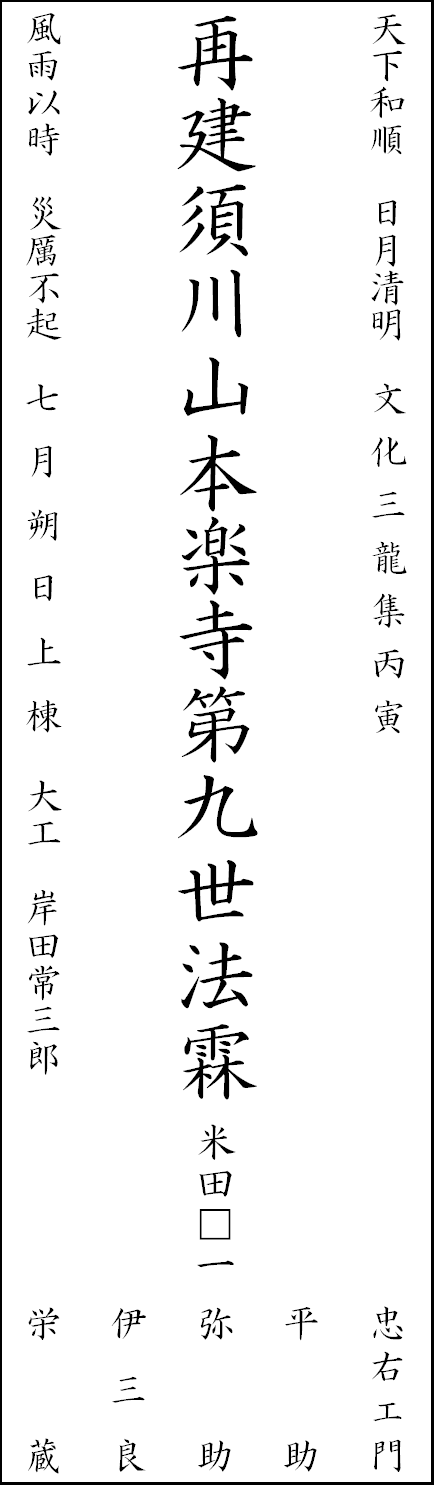 天下和順　日月清明　文化三龍集丙寅
再建須川山本楽寺第九世法霖
米田□一
風雨以時　災厲不起　七月朔日上棟　大工　岸田常三郎
忠右エ門
平助
弥助
伊三良
栄蔵